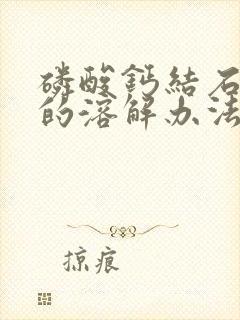 磷酸鈣結石
的溶解办法
掠痕